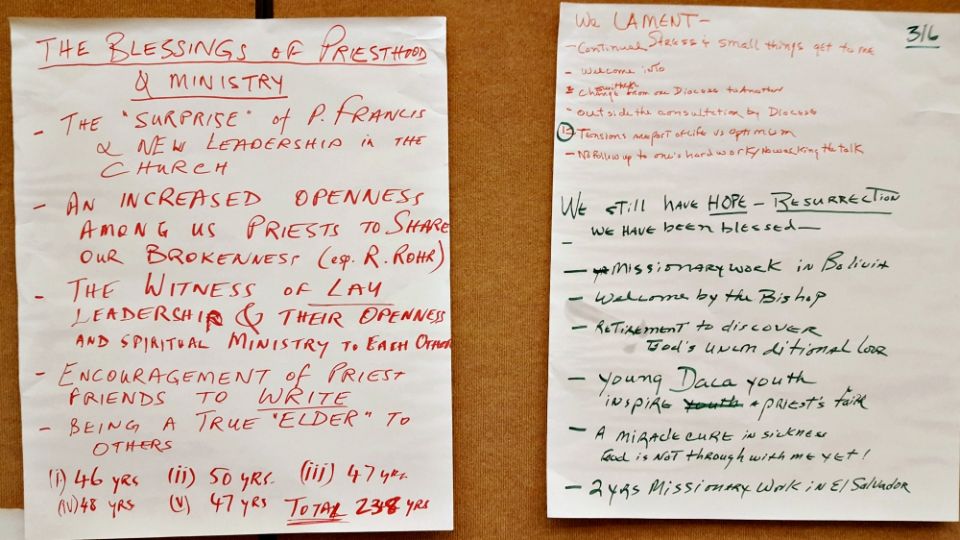 THE BLESSINGS OF PRIESTHOOD
& MINISTRY
- THE "SURPRISE" OF P. FRANCIS
& NEW LEADERSHIP IN THE
CHURCH
- AN INCREASED OPENNESS
AMONG US PRIESTS TO SHARE
OUR BROKENNESS (eg. R. ROHR)
- THE WITNESS OF LAY
LEADERSHIP & THEIR OPENNESS
AND SPIRITUAL MINISTRY TO EACH OTHER
- ENCOURAGEMENT OF PRIEST
FRIENDS TO WRITE
- BEING A TRUE "ELDER" TO
OTHERS
(i) 46 YRS (ii) 50 YRS. (iii) 47 YRS.
(iv) 48 YRS (v) 47 YRS TOTAL 238 YRS
We LAMENT-
316
- Continual Stress & small things get to me
- Welcome into
Change from one Diocese to Another
outside the consultation by Diocese
- Tensions as part of life vs optimum
- No follow up to one's hard work/No walking the talk
WE still HAVE HOPE - RESURRECTION
WE HAVE BEEN BLESSED—
-
- MISSIONARY WORK in Bolivia
- Welcome by the Bishop
- RETIREMENT to discover
God's unconditional Love
- young Daca youth
INSPIRE youth a PRIEST'S faith
- A MIRACLE CURE in SICKNESS
God is NOT through with me yet!
- 2 yrs Missionary Work in El Salvador